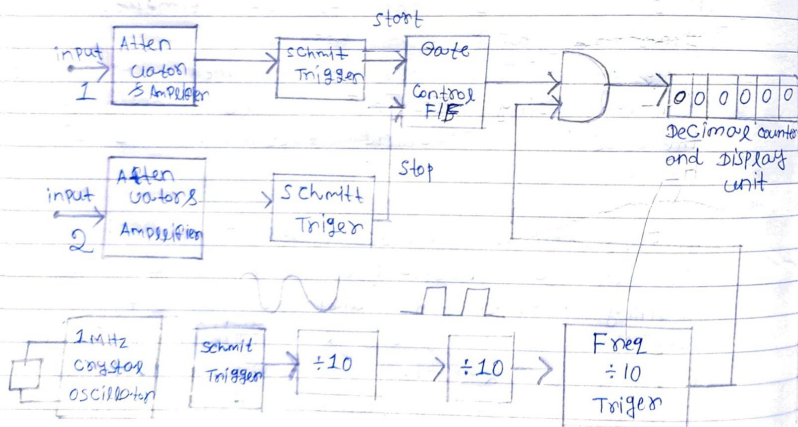 Start
input
1
Atten
uator
& Amplifier
Schmit
Trigger
Gate
Control
F/F
0 0 0 0 0 0
Decimal counter
and Display
unit
Stop
input
2
Atten
uators
Amplifier
Schmitt
Triger
1 MHz
crystal
oscillator
Schmit
Trigger
÷10
÷10
Freq
÷10
Triger